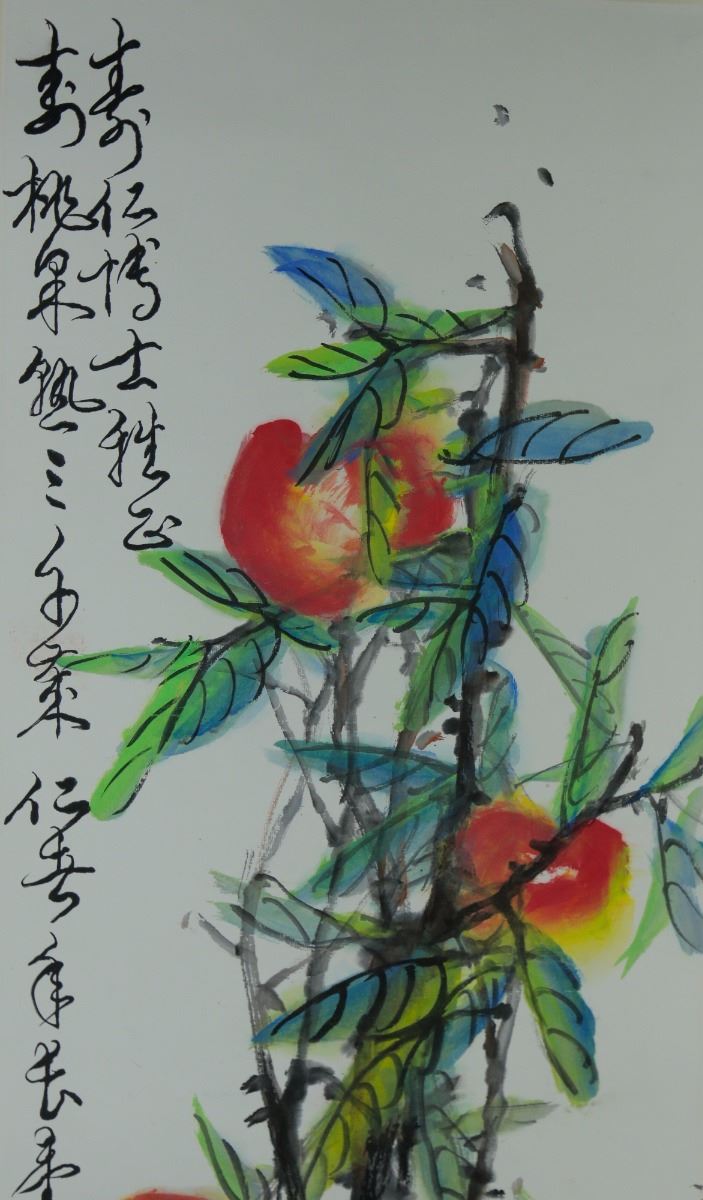 壽仁博士雅正
壽桃果熟三千歲仁者年長